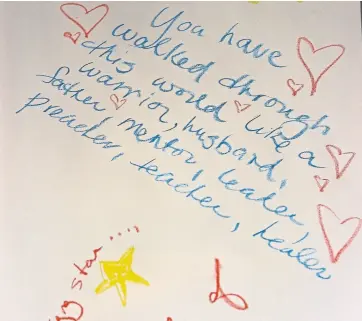 You have
walked through
this world like a
warrior, husband,
father mentor, leader,
preacher, teacher, healer
star....,